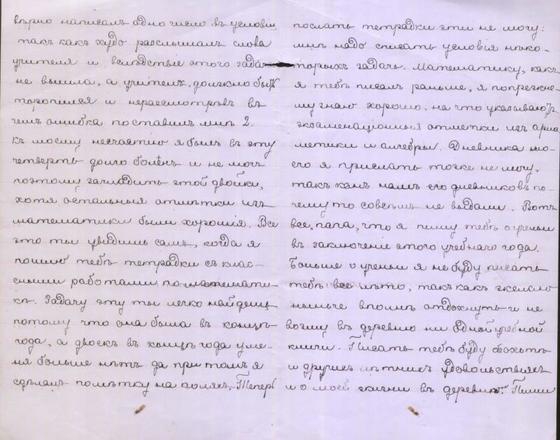 вѣрно написалъ одно число въ условіи,
такъ какъ худо разслышалъ слова
учителя и вслѣдствіе этого задача
не вышла, а учитель, должно быть
торопился и неразсмотрѣвъ въ
чемъ ошибка поставилъ мнѣ 2.
Къ моему несчастію я былъ въ эту
четверть долго боленъ и не могъ
поэтому загладить этой двойки,
хотя остальныя отмѣтки изъ
математики были хорошія. Все
это ты увидишь самъ, когда я
пошлю тебѣ тетрадки съ клас-
сными работами по математи-
кѣ. Задачу эту ты легко найдешь
потому что она была въ концѣ
года, а двоекъ въ концѣ года у ме-
ня больше нѣтъ да при томъ я
сдѣлалъ помѣтку на поляхъ. Теперь
послать тетрадки эти не могу:
мнѣ надо списать условія нѣко-
торыхъ задачъ. Математику, какъ
я тебѣ писалъ раньше, я попрежне-
му знаю хорошо, на что указываютъ
экзаменаціонныя отмѣтки изъ ариѳ-
метики и алгебры. Дневника мо-
его я прислать тоже не могу,
такъ какъ намъ его дневниковъ по-
чему то совсѣмъ не выдали. Вотъ
все, папа, что я пишу тебѣ о ученьи
въ заключеніе этого учебнаго года.
Больше о ученьи я не буду писать
тебѣ все лѣто, такъ какъ желаю
нынче вполнѣ отдохнуть и не
вожу въ деревню ни одной учебной
книги. Писать тебѣ буду о охотѣ
и другихъ лѣтнихъ удовольствіяхъ
и о моей жизни въ деревнѣ. Пиши